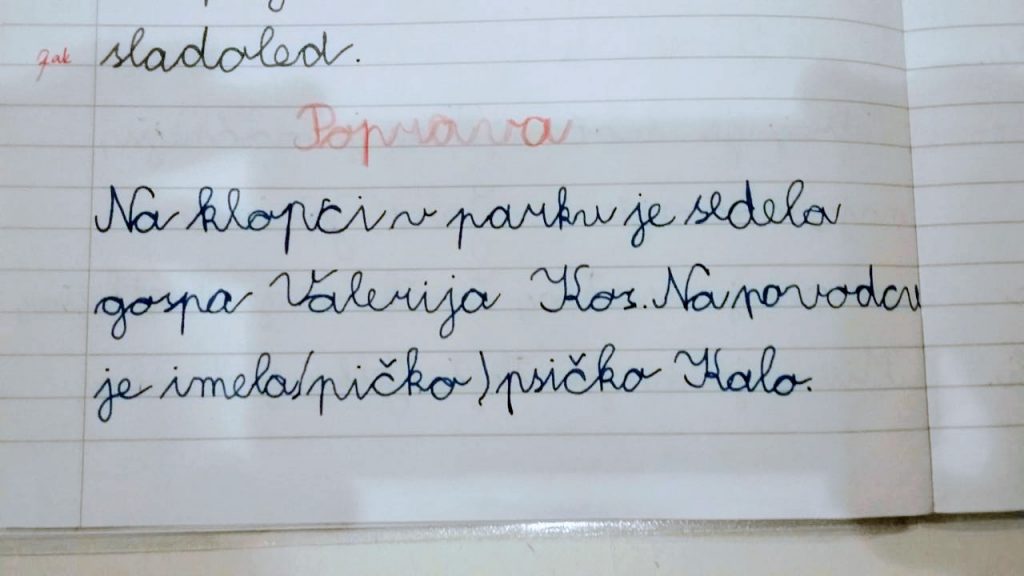 gak sladoled.
Poprava
Na klopci v parku je sedela
gospa Valerija Kos. Na povodcu
je imela (pičko) psičko Kalo.